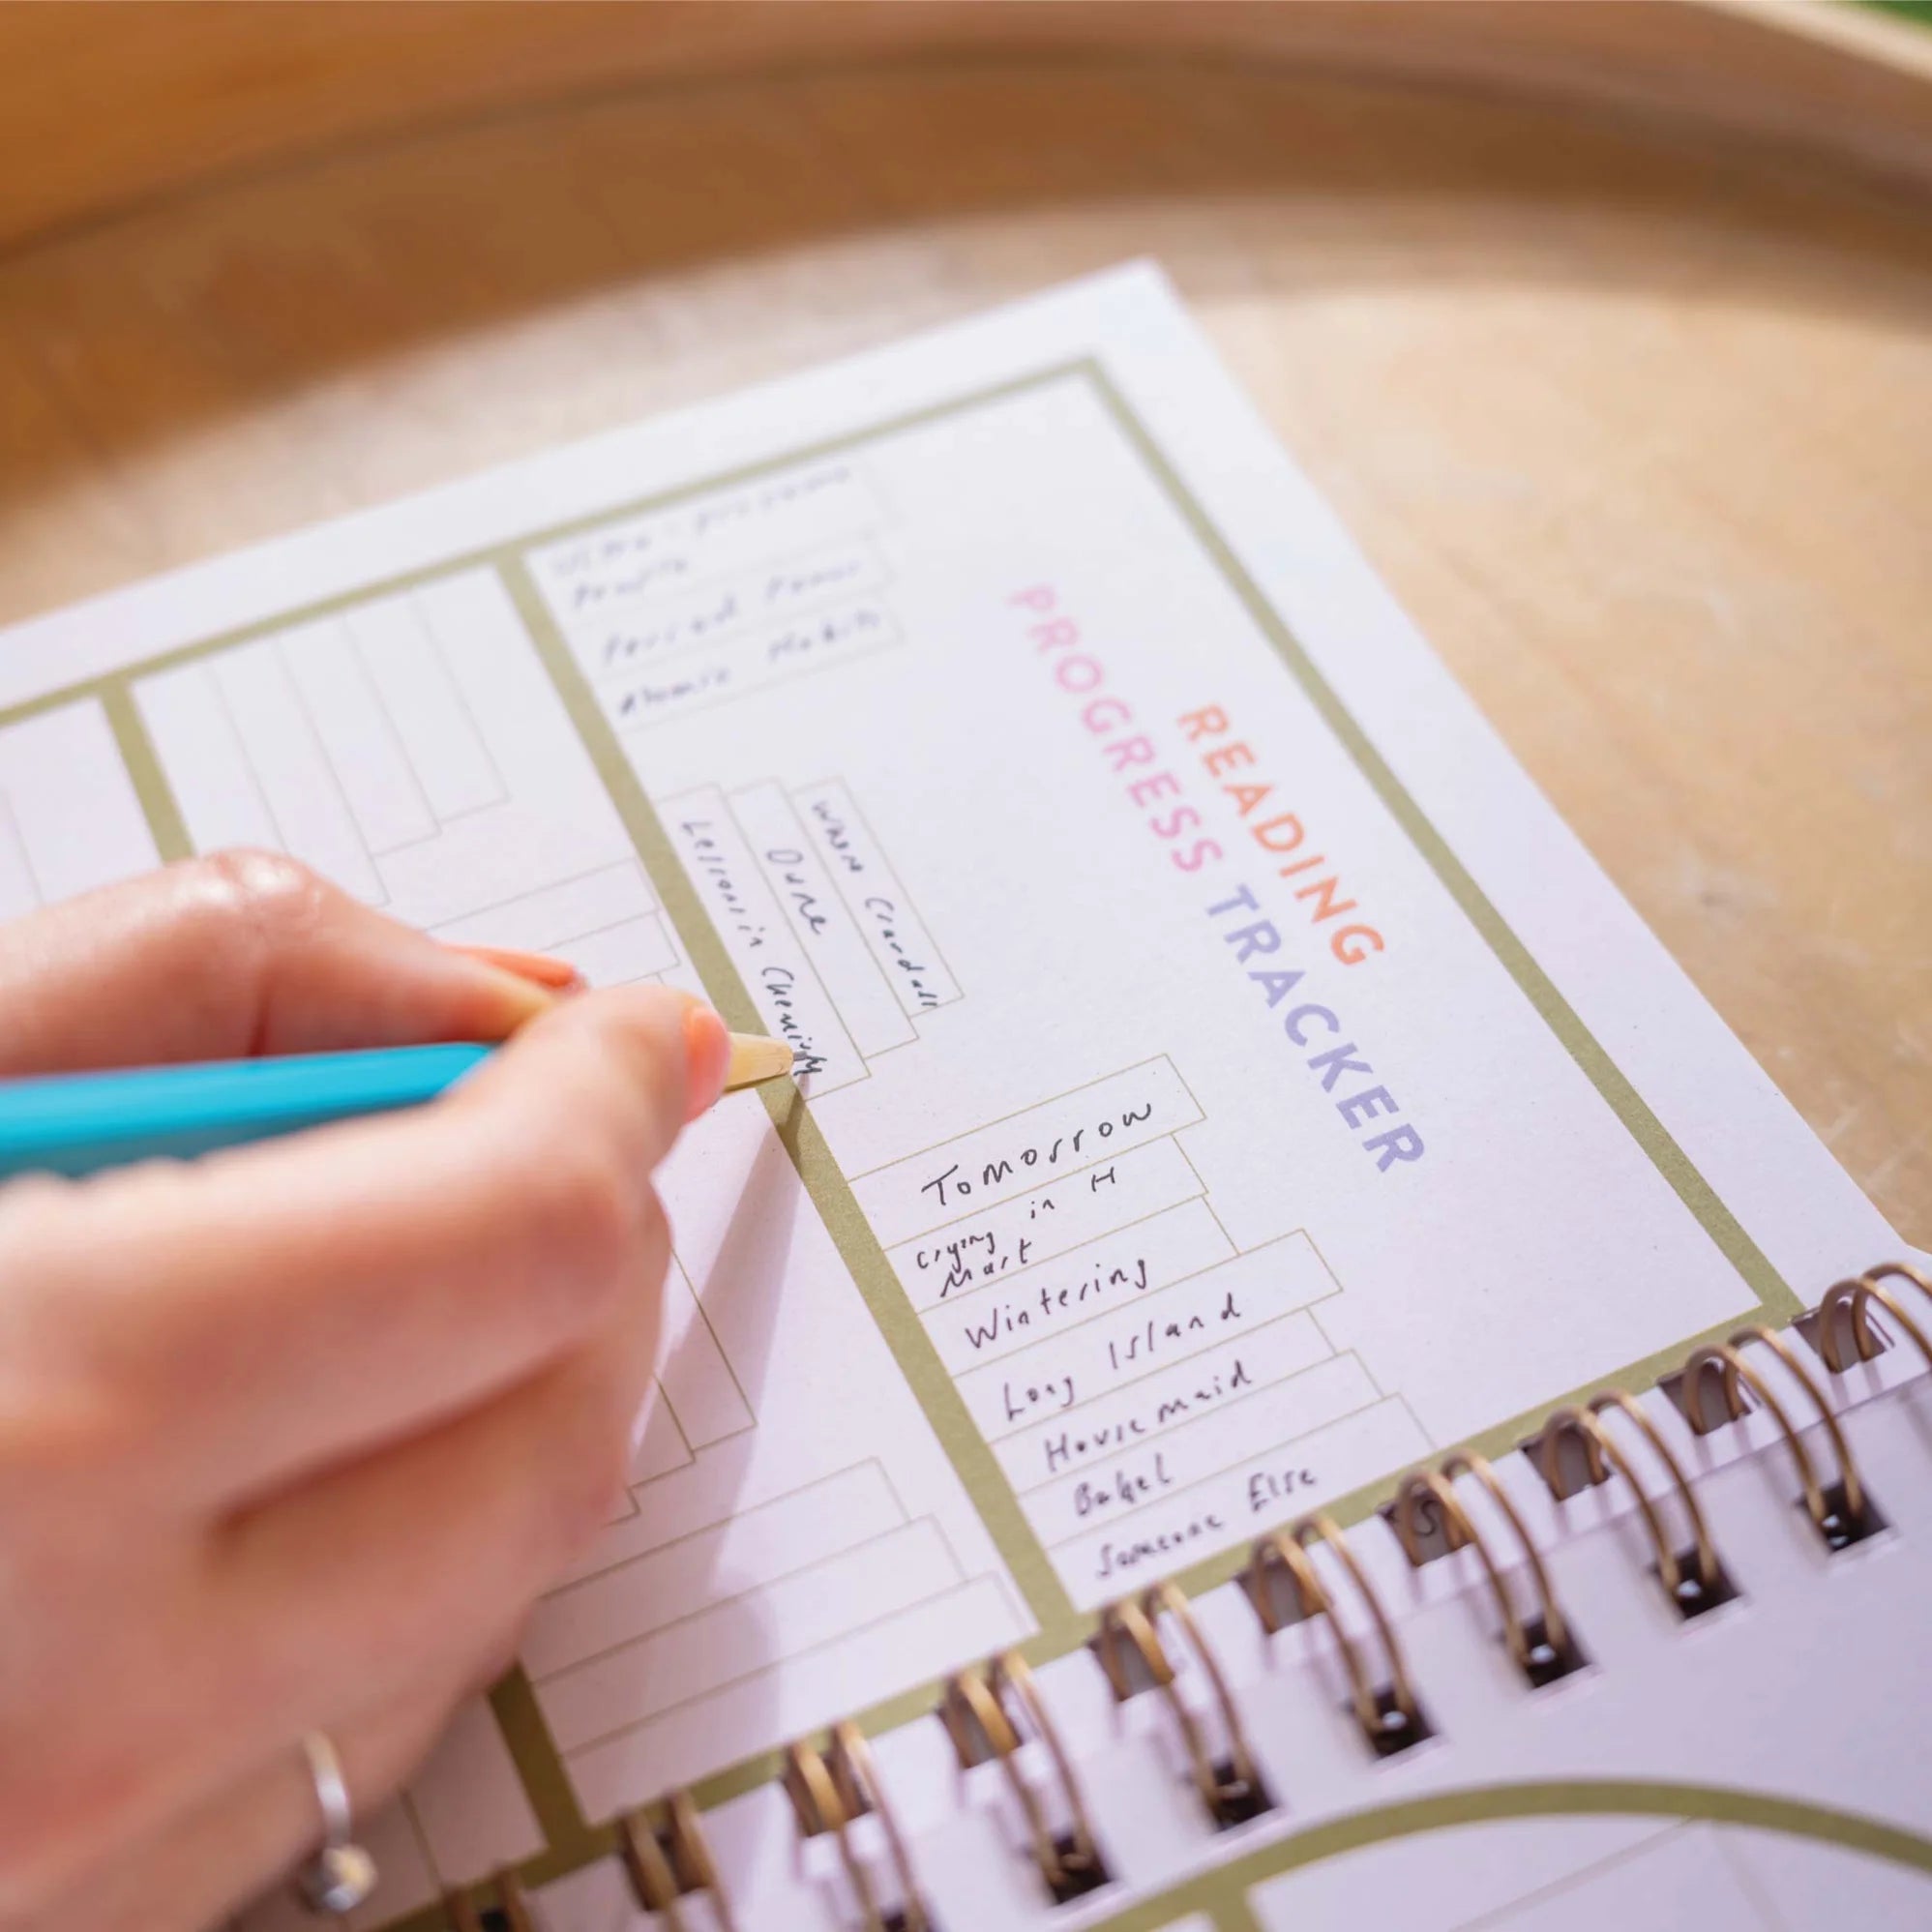 READING
PROGRESS TRACKER
Period Power
Atomic Habits
Lessons in Chemistry
Dune
Tomorrow
Crying in H
Mart
Wintering
Long Island
Housemaid
Babel
Someone Else